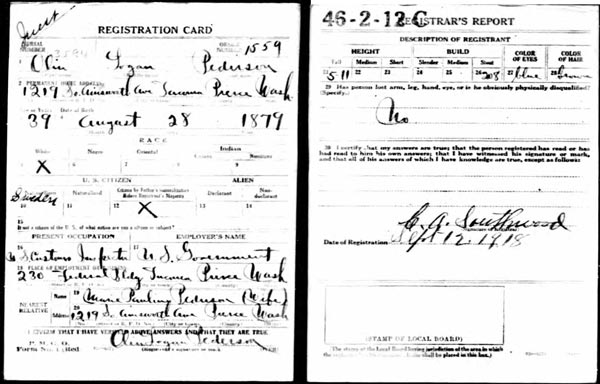 REGISTRATION CARD
SERIAL NUMBER 3594 ORDER NUMBER 1559
Olin Logan Pederson
2 PERMANENT HOME ADDRESS:
1219 So. Ainsworth Ave Tacoma Pierce Wash
Age in Years Date of Birth
39 August 28 1879
RACE
White Negro Oriental Indian
Citizen Noncitizen
X
U. S. CITIZEN ALIEN
Native Born Naturalized Citizen by Father's Naturalization Before Registrant's Majority Declarant Non-declarant
10 11 12 X 13 14
Sweden
15
If not a citizen of the U. S., of what nation are you a citizen or subject?
PRESENT OCCUPATION EMPLOYER'S NAME
16 17
U S Customs Inspector U. S. Government
18 PLACE OF EMPLOYMENT
230 Federal Bldg Tacoma Pierce Wash
NEAREST RELATIVE
Name 19 Pauline Pederson (Wife)
Address 20
1219 So. Ainsworth Ave Pierce Wash
I AFFIRM THAT I HAVE VERIFIED ABOVE ANSWERS AND THAT THEY ARE TRUE
P. M. G. O.
Form No. 1 (Red)
Olin Logan Pederson
46-2-12 C
REGISTRAR'S REPORT
DESCRIPTION OF REGISTRANT
HEIGHT BUILD COLOR OF EYES COLOR OF HAIR
Tall Medium Short Slender Medium Stout
21 5-11 22 23 24 25 26 208 27 blue 28 brown
29 Has person lost arm, leg, hand, eye, or is he obviously physically disqualified?
(Specify.)
No
30 I certify that my answers are true; that the person registered has read or has
had read to him his own answers; that I have witnessed his signature or mark,
and that all of his answers of which I have knowledge are true, except as follows:
C. A. Southwood
Date of Registration Sept 12, 1918
(STAMP OF LOCAL BOARD)
(The stamp of the Local Board having jurisdiction of the area in which
the registrant has his permanent home shall be placed in this box.)